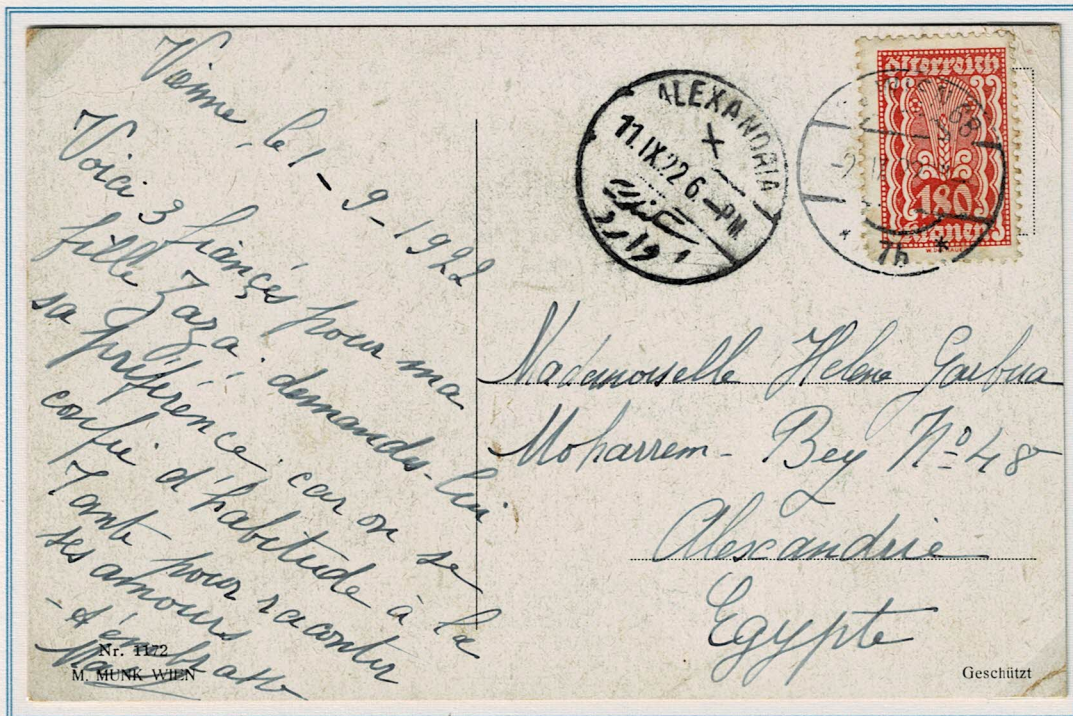 Vienne, le 1-9-1922
Voici 3 fiancés pour ma
fille Zaza: demandes-lui
sa préférence, car on se
confie d'habitude à la
Tante pour raconter
ses amours
Nr. 1172
M. MUNK WIEN
ALEXANDRIA
11.IX.22 6.-PM
اسكندرية
وارد
Österreich
180
Kronen
7b *
Mademoiselle Helene
Moharrem-Bey Nº 48
Alexandrie
Egypte
Geschützt